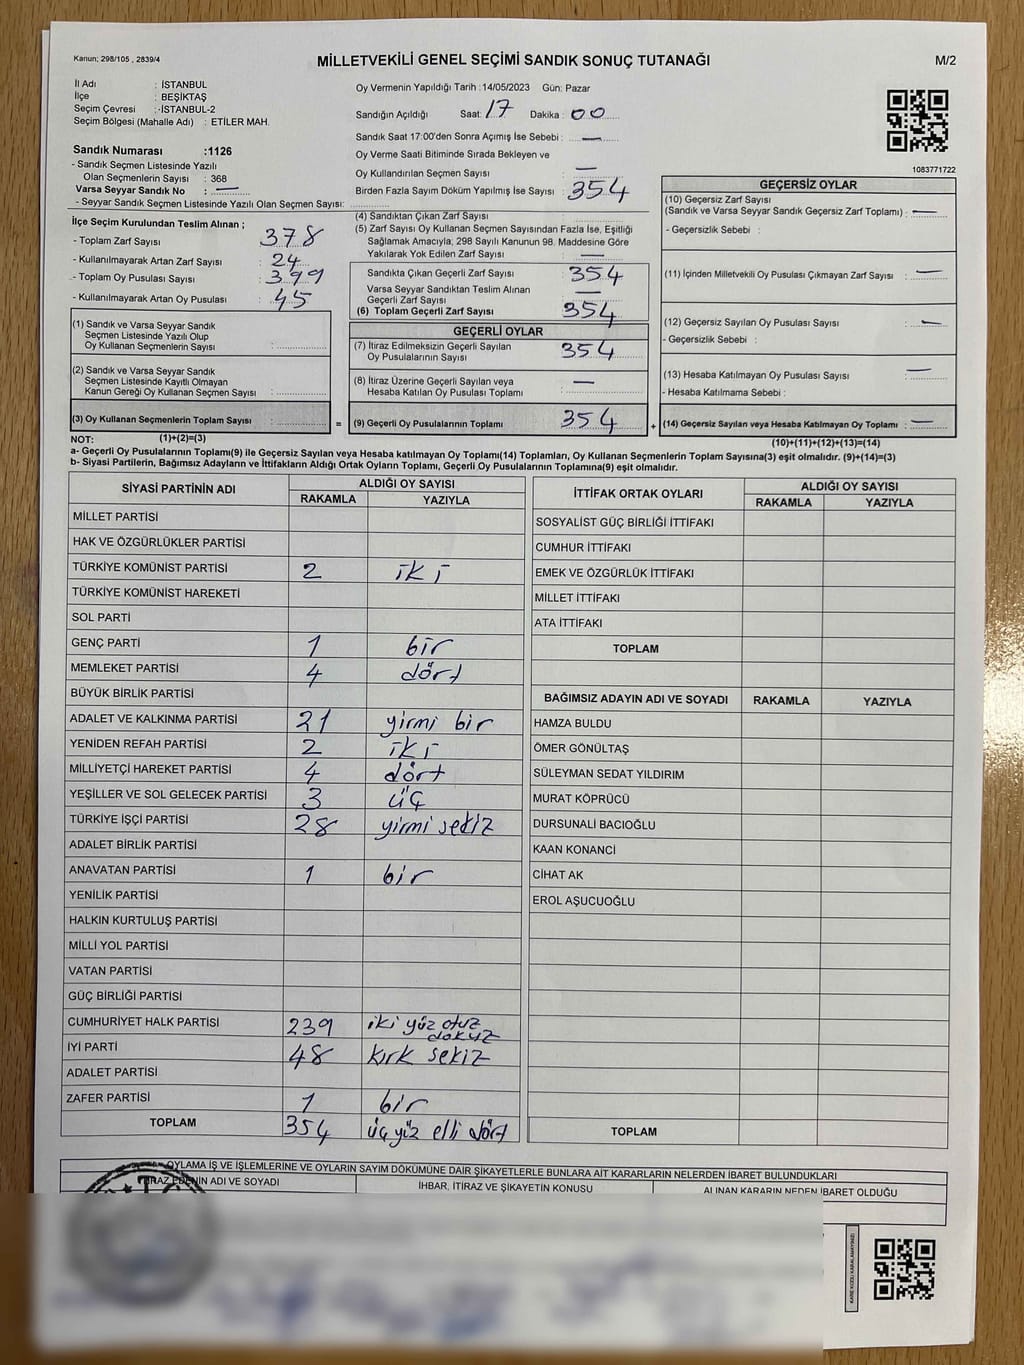 Kanun; 298/105 , 2839/4
MİLLETVEKİLİ GENEL SEÇİMİ SANDIK SONUÇ TUTANAĞI
M/2
İl Adı : İSTANBUL
İlçe : BEŞİKTAŞ
Seçim Çevresi : -İSTANBUL-2
Seçim Bölgesi (Mahalle Adı) : ETİLER MAH.
Sandık Numarası :1126
- Sandık Seçmen Listesinde Yazılı
Olan Seçmenlerin Sayısı : 368
Varsa Seyyar Sandık No : —
- Seyyar Sandık Seçmen Listesinde Yazılı Olan Seçmen Sayısı:
Oy Vermenin Yapıldığı Tarih :14/05/2023 Gün: Pazar
Sandığın Açıldığı Saat: 17 Dakika : 00
Sandık Saat 17:00'den Sonra Açımış İse Sebebi : —
Oy Verme Saati Bitiminde Sırada Bekleyen ve
Oy Kullandırılan Seçmen Sayısı : —
Birden Fazla Sayım Döküm Yapılmış İse Sayısı : 354
1083771722
İlçe Seçim Kurulundan Teslim Alınan ;
- Toplam Zarf Sayısı : 378
- Kullanılmayarak Artan Zarf Sayısı : 24
- Toplam Oy Pusulası Sayısı : 399
- Kullanılmayarak Artan Oy Pusulası : 45
(1) Sandık ve Varsa Seyyar Sandık
Seçmen Listesinde Yazılı Olup
Oy Kullanan Seçmenlerin Sayısı :
(2) Sandık ve Varsa Seyyar Sandık
Seçmen Listesinde Kayıtlı Olmayan
Kanun Gereği Oy Kullanan Seçmen Sayısı :
(3) Oy Kullanan Seçmenlerin Toplam Sayısı :
(4) Sandıktan Çıkan Zarf Sayısı :
(5) Zarf Sayısı Oy Kullanan Seçmen Sayısından Fazla İse, Eşitliği
Sağlamak Amacıyla; 298 Sayılı Kanunun 98. Maddesine Göre
Yakılarak Yok Edilen Zarf Sayısı : —
Sandıkta Çıkan Geçerli Zarf Sayısı : 354
Varsa Seyyar Sandıktan Teslim Alınan
Geçerli Zarf Sayısı : —
(6) Toplam Geçerli Zarf Sayısı : 354
GEÇERLİ OYLAR
(7) İtiraz Edilmeksizin Geçerli Sayılan
Oy Pusulalarının Sayısı : 354
(8) İtiraz Üzerine Geçerli Sayılan veya
Hesaba Katılan Oy Pusulası Toplamı : —
= (9) Geçerli Oy Pusulalarının Toplamı 354
GEÇERSİZ OYLAR
(10) Geçersiz Zarf Sayısı
(Sandık ve Varsa Seyyar Sandık Geçersiz Zarf Toplamı) : —
- Geçersizlik Sebebi :
(11) İçinden Milletvekili Oy Pusulası Çıkmayan Zarf Sayısı : —
(12) Geçersiz Sayılan Oy Pusulası Sayısı : —
- Geçersizlik Sebebi :
(13) Hesaba Katılmayan Oy Pusulası Sayısı : —
- Hesaba Katılmama Sebebi :
+ (14) Geçersiz Sayılan veya Hesaba Katılmayan Oy Toplamı : —
NOT: (1)+(2)=(3)
(10)+(11)+(12)+(13)=(14)
a- Geçerli Oy Pusulalarının Toplamı(9) ile Geçersiz Sayılan veya Hesaba katılmayan Oy Toplamı(14) Toplamları, Oy Kullanan Seçmenlerin Toplam Sayısına(3) eşit olmalıdır. (9)+(14)=(3)
b- Siyasi Partilerin, Bağımsız Adayların ve İttifakların Aldığı Ortak Oyların Toplamı, Geçerli Oy Pusulalarının Toplamına(9) eşit olmalıdır.
SİYASİ PARTİNİN ADI ALDIĞI OY SAYISI
RAKAMLA YAZIYLA
MİLLET PARTİSİ
HAK VE ÖZGÜRLÜKLER PARTİSİ
TÜRKİYE KOMÜNİST PARTİSİ 2 iki
TÜRKİYE KOMÜNİST HAREKETİ
SOL PARTİ
GENÇ PARTİ 1 bir
MEMLEKET PARTİSİ 4 dört
BÜYÜK BİRLİK PARTİSİ
ADALET VE KALKINMA PARTİSİ 21 yirmi bir
YENİDEN REFAH PARTİSİ 2 iki
MİLLİYETÇİ HAREKET PARTİSİ 4 dört
YEŞİLLER VE SOL GELECEK PARTİSİ 3 üç
TÜRKİYE İŞÇİ PARTİSİ 28 yirmi sekiz
ADALET BİRLİK PARTİSİ
ANAVATAN PARTİSİ 1 bir
YENİLİK PARTİSİ
HALKIN KURTULUŞ PARTİSİ
MİLLİ YOL PARTİSİ
VATAN PARTİSİ
GÜÇ BİRLİĞİ PARTİSİ
CUMHURİYET HALK PARTİSİ 239 iki yüz otuz
dokuz
İYİ PARTİ 48 kırk sekiz
ADALET PARTİSİ
ZAFER PARTİSİ 1 bir
TOPLAM 354 üç yüz elli dört
İTTİFAK ORTAK OYLARI ALDIĞI OY SAYISI
RAKAMLA YAZIYLA
SOSYALİST GÜÇ BİRLİĞİ İTTİFAKI
CUMHUR İTTİFAKI
EMEK VE ÖZGÜRLÜK İTTİFAKI
MİLLET İTTİFAKI
ATA İTTİFAKI
TOPLAM
BAĞIMSIZ ADAYIN ADI VE SOYADI RAKAMLA YAZIYLA
HAMZA BULDU
ÖMER GÖNÜLTAŞ
SÜLEYMAN SEDAT YILDIRIM
MURAT KÖPRÜCÜ
DURSUNALİ BACIOĞLU
KAAN KONANCİ
CİHAT AK
EROL AŞUCUOĞLU
TOPLAM
OYLAMA İŞ VE İŞLEMLERİNE VE OYLARIN SAYIM DÖKÜMÜNE DAİR ŞİKAYETLERLE BUNLARA AİT KARARLARIN NELERDEN İBARET BULUNDUKLARI
İTİRAZ EDENİN ADI VE SOYADI İHBAR, İTİRAZ VE ŞİKAYETİN KONUSU ALINAN KARARIN NEDEN İBARET OLDUĞU